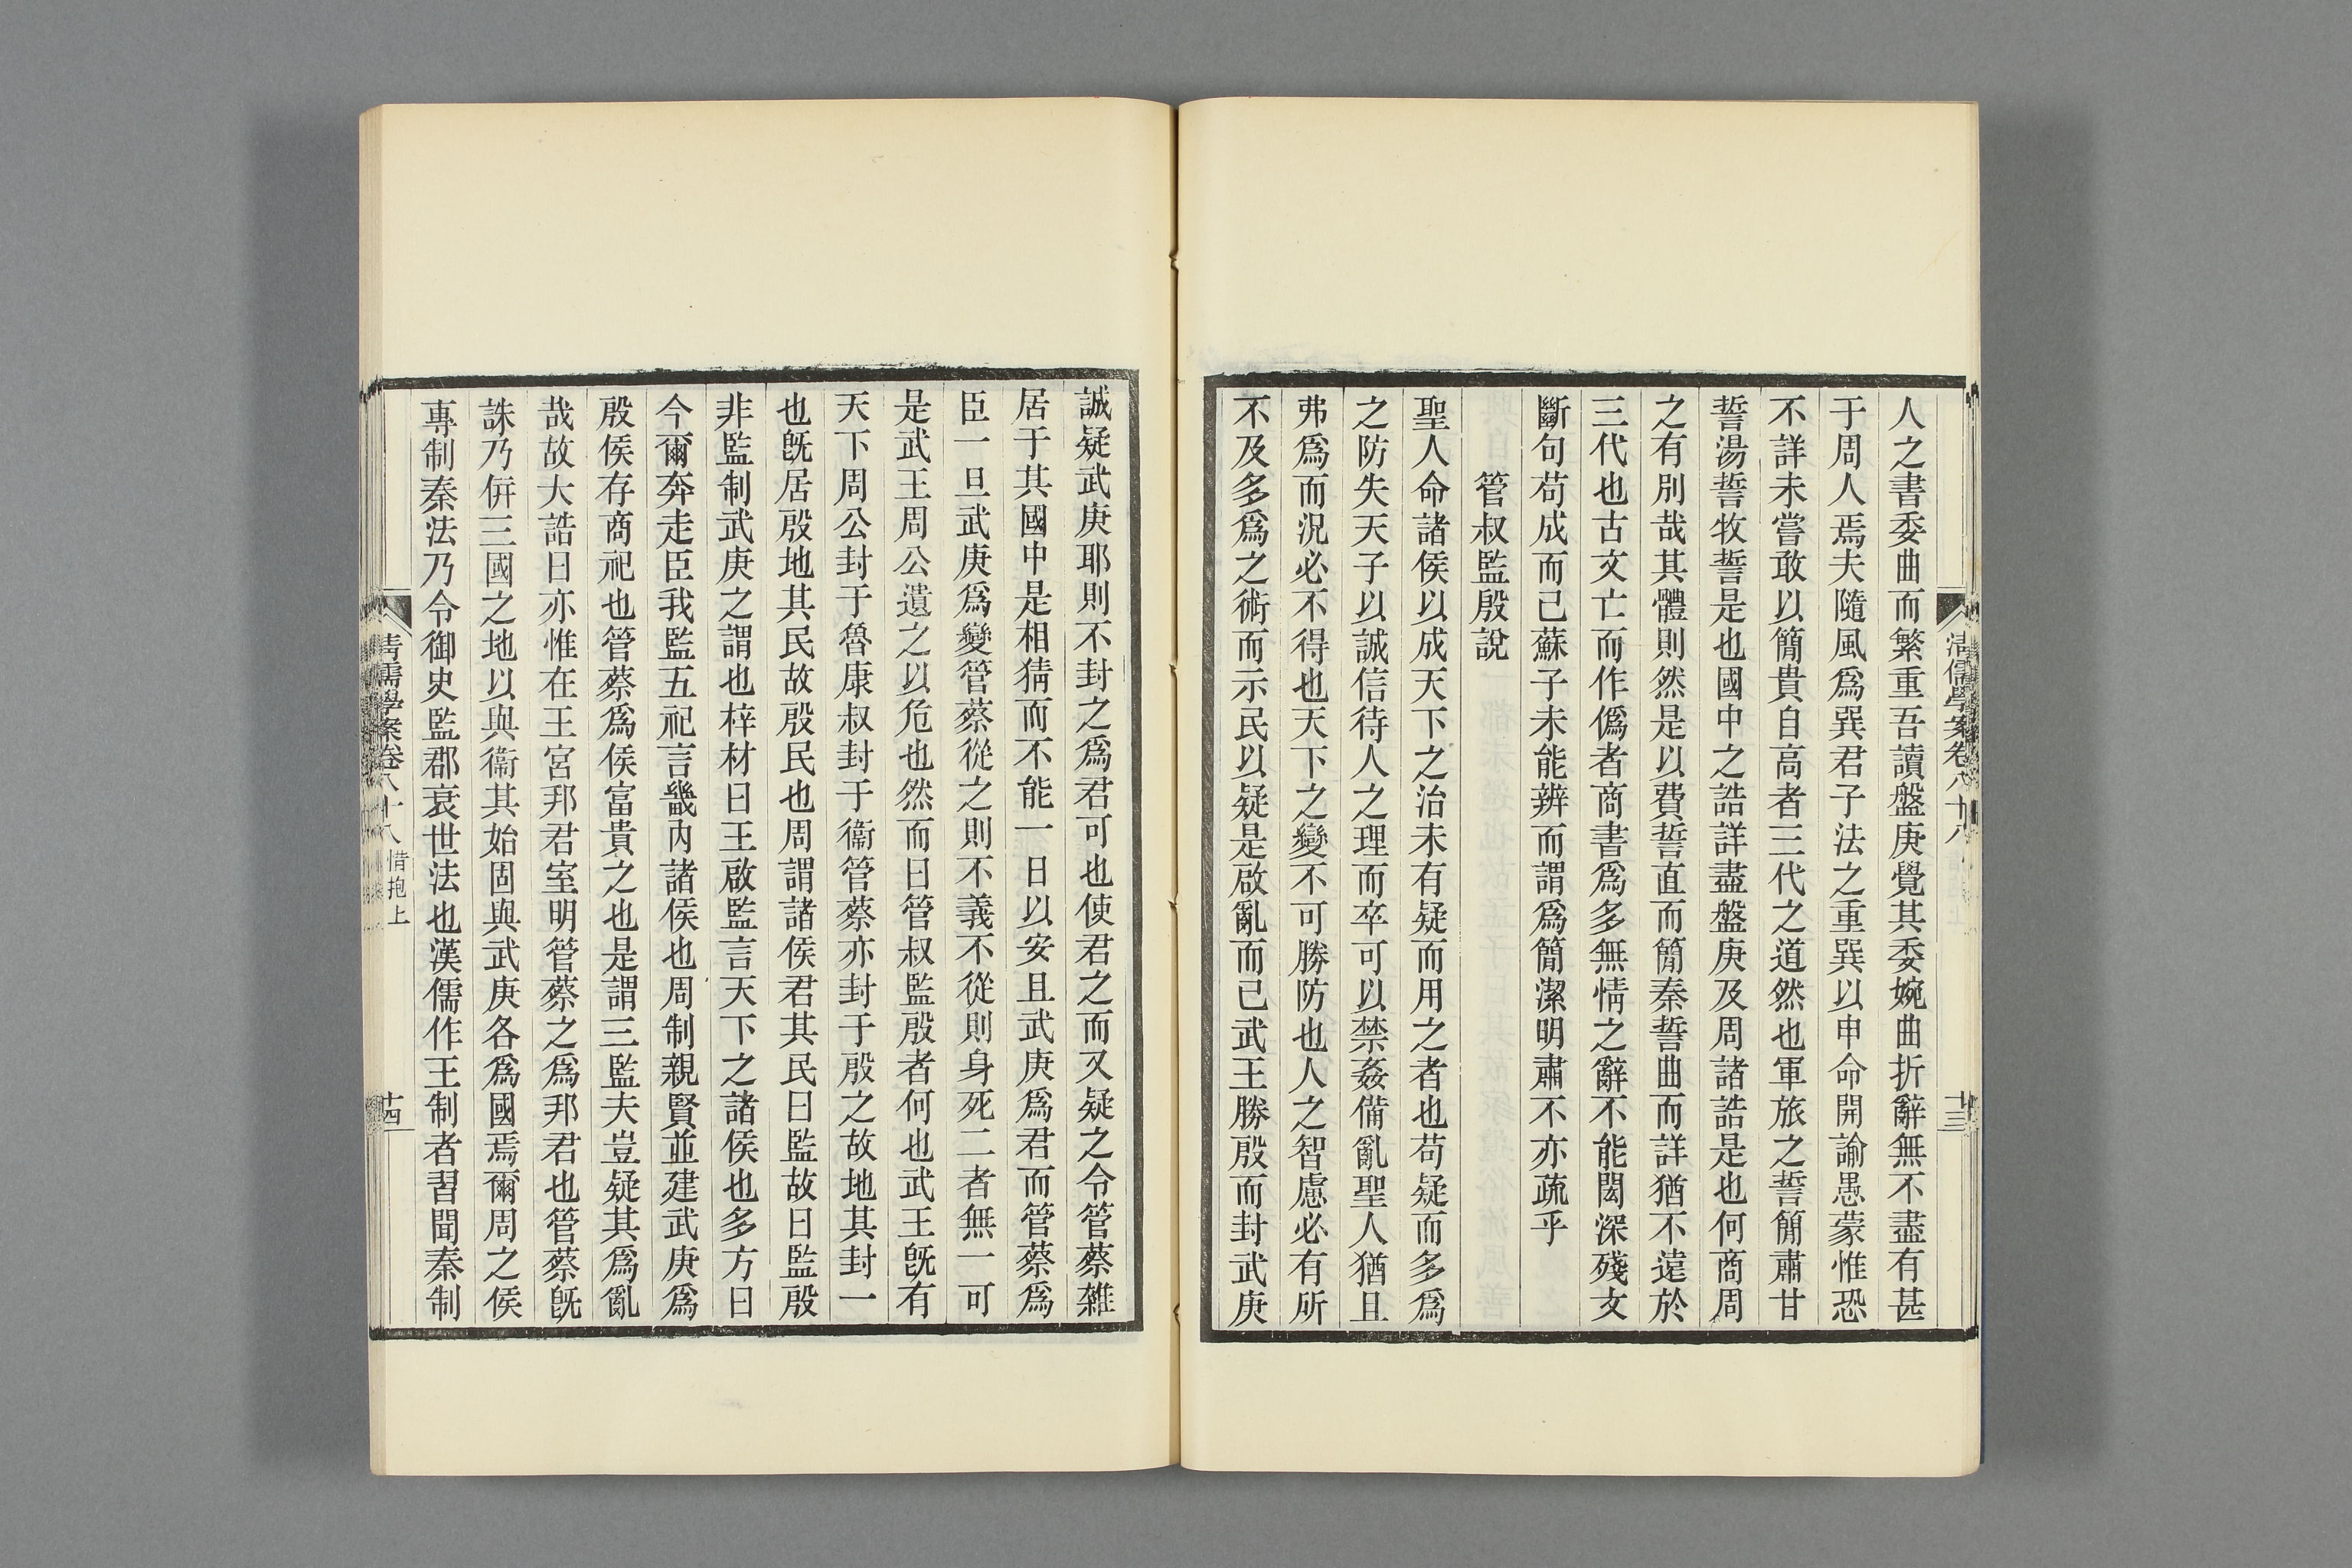 清儒學案卷八十八
十三
人之書委曲而繁重吾讀盤庚覺其委婉曲折辭無不盡有甚
于周人焉夫隨風爲巽君子法之重巽以申命開諭愚蒙惟恐
不詳未嘗敢以簡貴自高者三代之道然也軍旅之誓簡肅甘
誓湯誓牧誓是也國中之誥詳盡盤庚及周諸誥是也何商周
之有別哉其體則然是以費誓直而簡秦誓曲而詳猶不遠於
三代也古文亡而作僞者商書爲多無情之辭不能閎深殘文
斷句苟成而已蘇子未能辨而謂爲簡潔明肅不亦疏乎
管叔監殷說
聖人命諸侯以成天下之治未有疑而用之者也苟疑而多爲
之防失天子以誠信待人之理而卒可以禁姦備亂聖人猶且
弗爲而況必不得也天下之變不可勝防也人之智慮必有所
不及多爲之術而示民以疑是啟亂而已武王勝殷而封武庚
誠疑武庚耶則不封之爲君可也使君之而又疑之令管蔡雜
居于其國中是相猜而不能一日以安且武庚爲君而管蔡爲
臣一旦武庚爲變管蔡從之則不義不從則身死二者無一可
是武王周公遺之以危也然而曰管叔監殷者何也武王旣有
天下周公封于魯康叔封于衞管蔡亦封于殷之故地其封一
也旣居殷地其民故殷民也周謂諸侯君其民曰監故曰監殷
非監制武庚之謂也梓材曰王啟監言天下之諸侯也多方曰
今爾奔走臣我監五祀言畿內諸侯也周制親賢並建武庚爲
殷侯存商祀也管蔡爲侯富貴之也是謂三監夫豈疑其爲亂
哉故大誥曰亦惟在王宮邦君室明管蔡之爲邦君也管蔡旣
誅乃倂三國之地以與衞其始固與武庚各爲國焉爾周之侯
專制秦法乃令御史監郡衰世法也漢儒作王制者習聞秦制
清儒學案卷八十八 惜抱上
十四